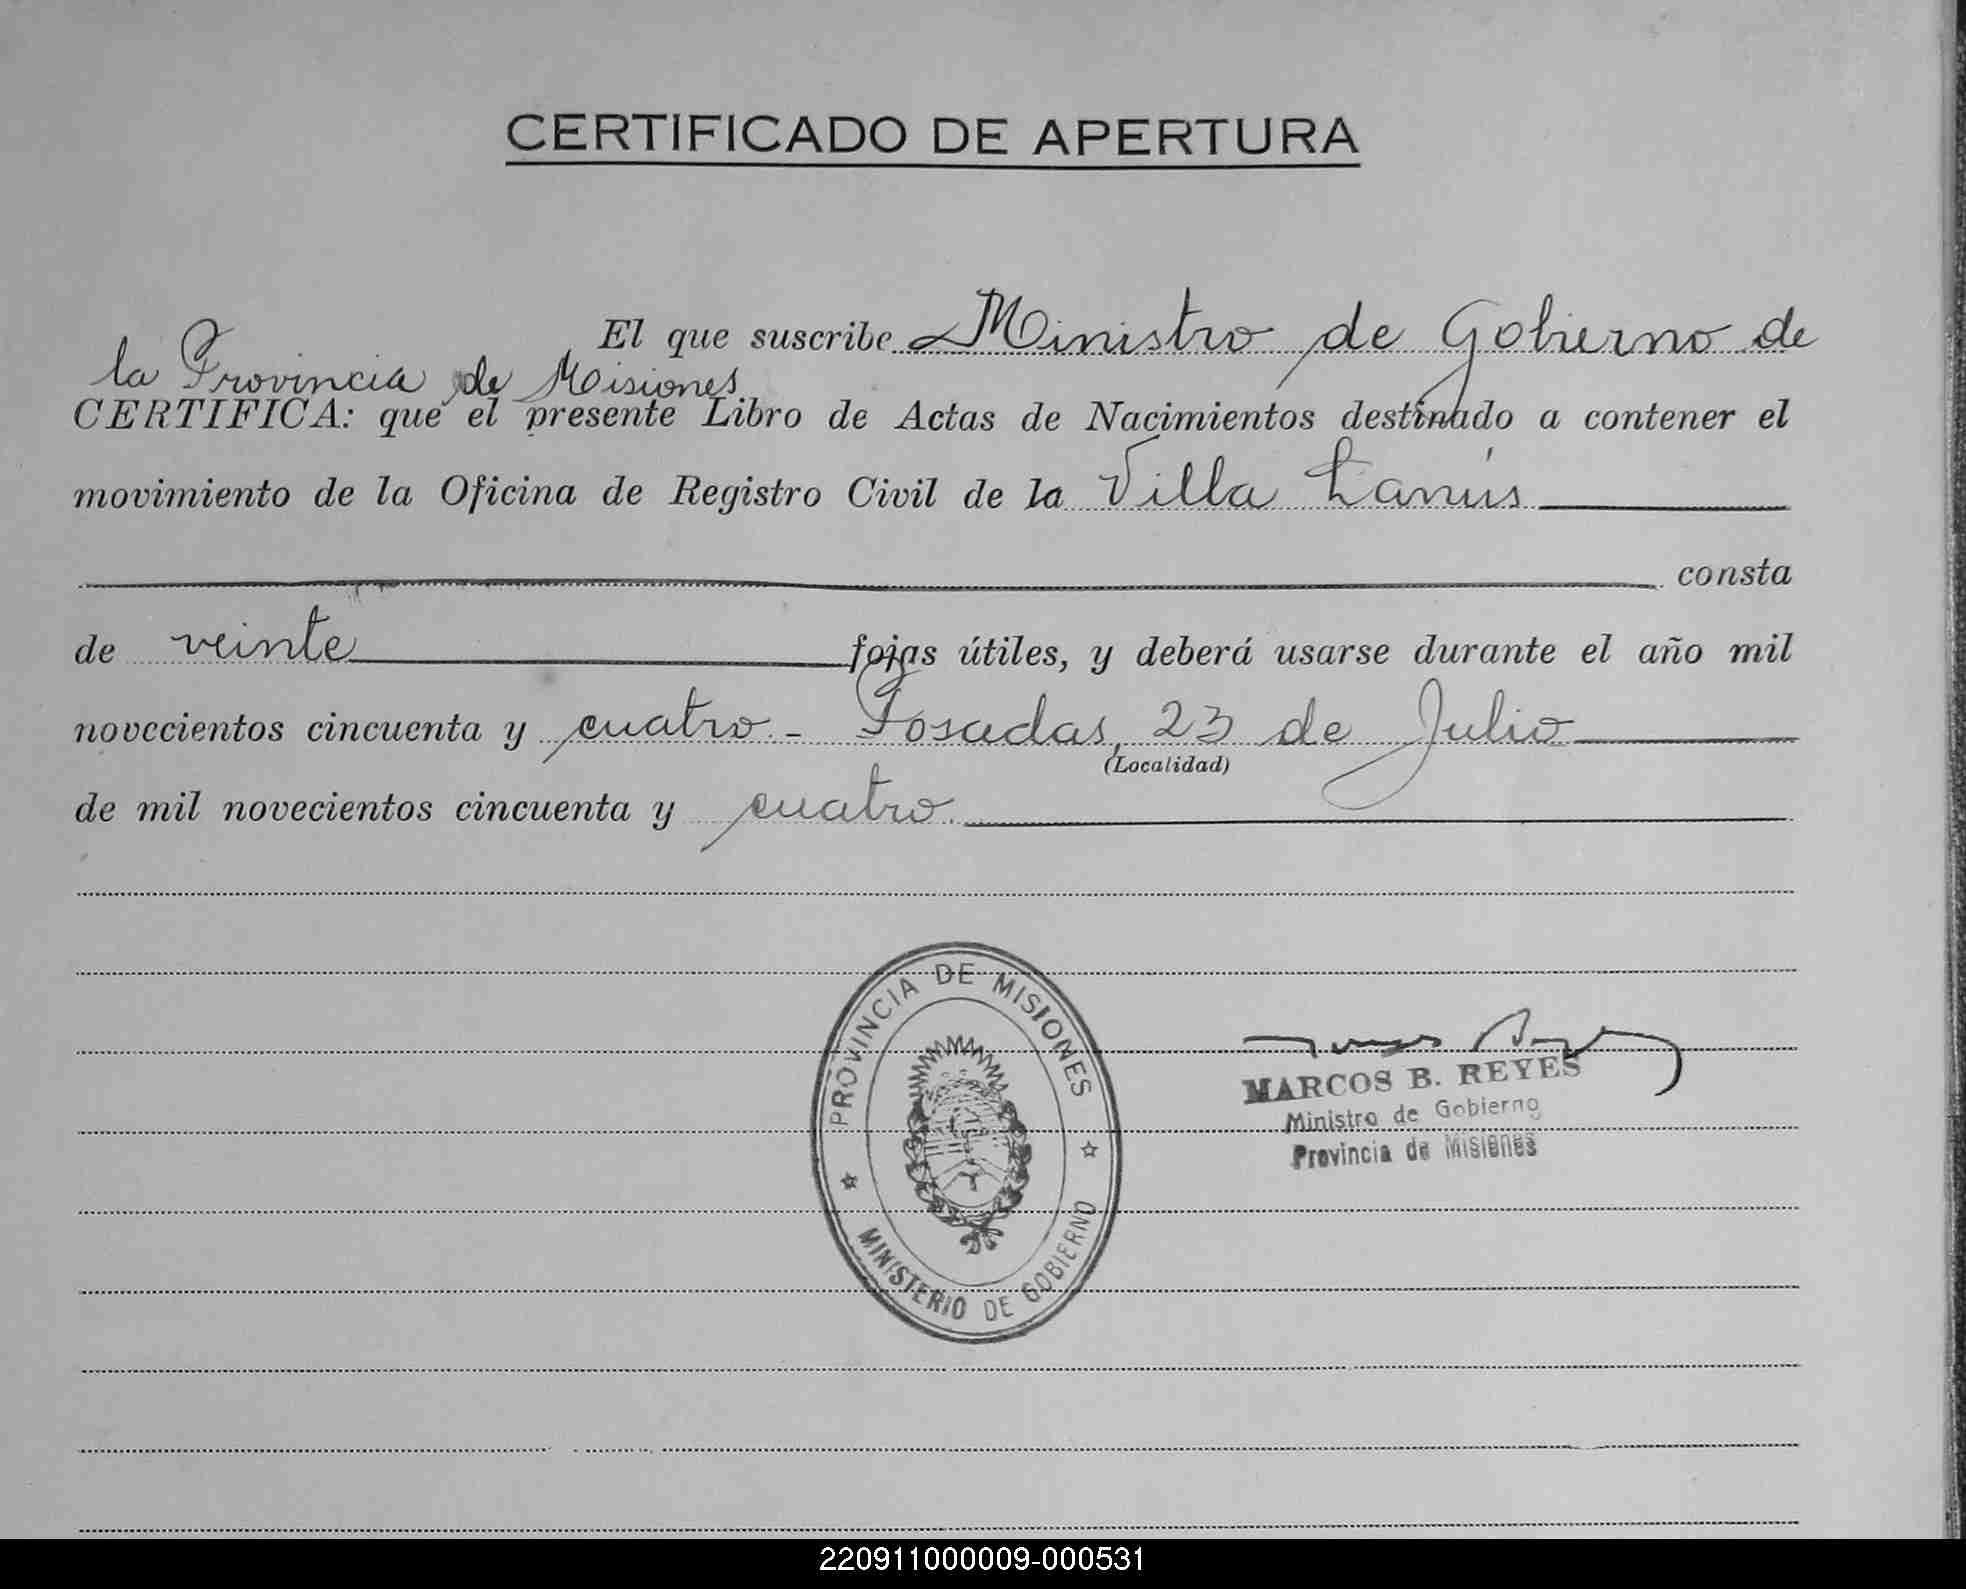 CERTIFICADO DE APERTURA
El que suscribe Ministro de Gobierno de
la Provincia de Misiones
CERTIFICA: que el presente Libro de Actas de Nacimientos destinado a contener el
movimiento de la Oficina de Registro Civil de la Villa Lanús
consta
de veinte fojas útiles, y deberá usarse durante el año mil
novecientos cincuenta y cuatro.- Posadas, 23 de Julio
(Localidad)
de mil novecientos cincuenta y cuatro.
PROVINCIA DE MISIONES
MINISTERIO DE GOBIERNO
MARCOS B. REYES
Ministro de Gobierno
Provincia de Misiones
220911000009-000531